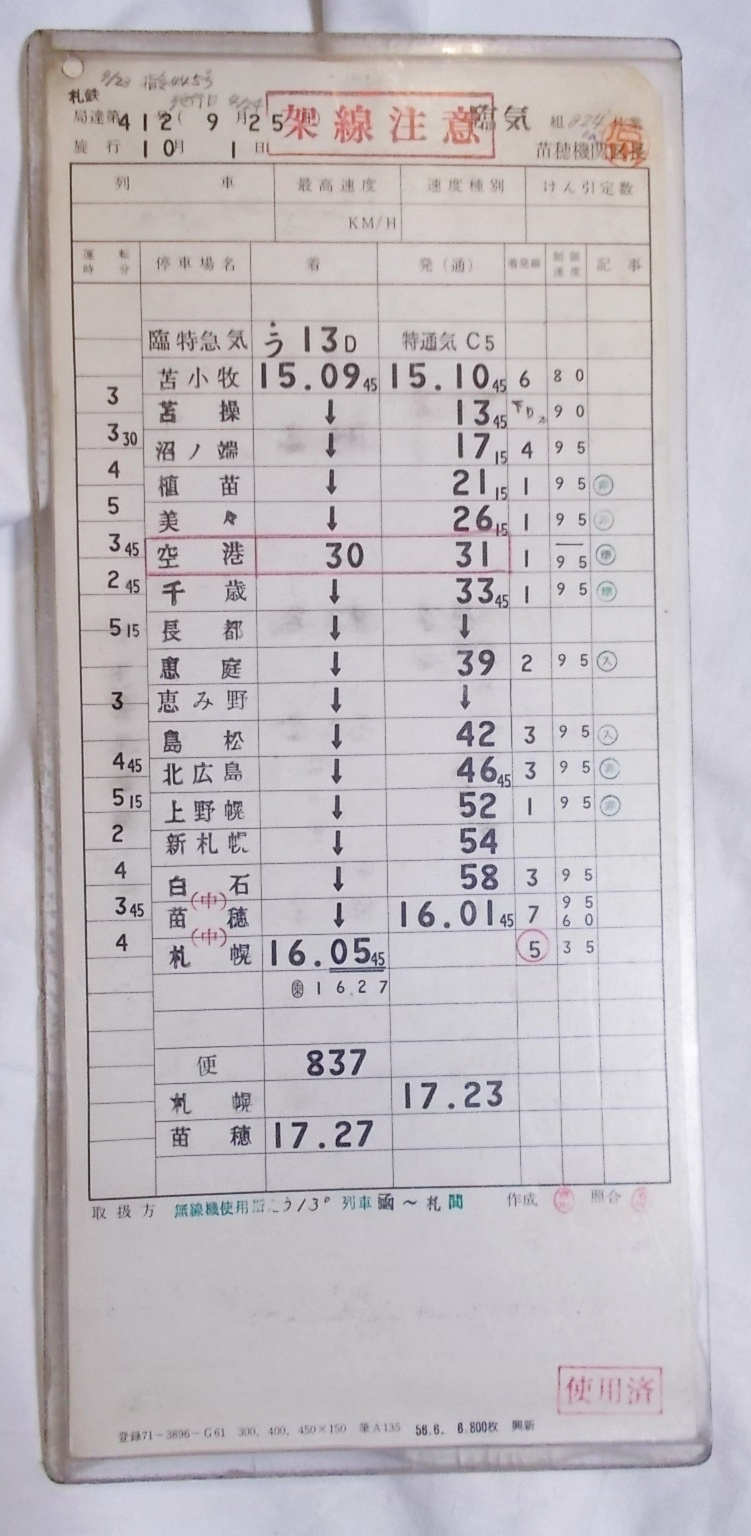 札鉄
局達第412号( 9月25日)
架線注意
臨気 組
施行 10月 1日
苗穂機関区長
列 車 最高速度 速度種別 けん引定数
KM/H
運転時分 停車場名 着 発(通) 着発線 制限速度 記事
臨特急気 う13D 特通気C5
苫小牧 15.09 45 15.10 45 6 80
3
苫操 ↓ 13 45 下り本 90
3 30
沼ノ端 ↓ 17 15 4 95
4
植苗 ↓ 21 15 1 95
5
美々 ↓ 26 15 1 95
3 45
空港 30 31 1 95
2 45
千歳 ↓ 33 45 1 95
5 15
長都 ↓ ↓
恵庭 ↓ 39 2 95 入
3
恵み野 ↓ ↓
島松 ↓ 42 3 95 入
4 45
北広島 ↓ 46 45 3 95
5 15
上野幌 ↓ 52 1 95
2
新札幌 ↓ 54
4
白石 ↓ 58 3 95
(中)
3 45
苗穂 ↓ 16.01 45 7 95 60
(中)
4
札幌 16.05 45 5 35
16.27
便 837
札幌 17.23
苗穂 17.27
取扱方 無線機使用 う13D 列車 〜札間 作成 照合
使用済
登録71-3896-G61 300, 400, 450×150 筆A135 56.6. 6.800枚 興新